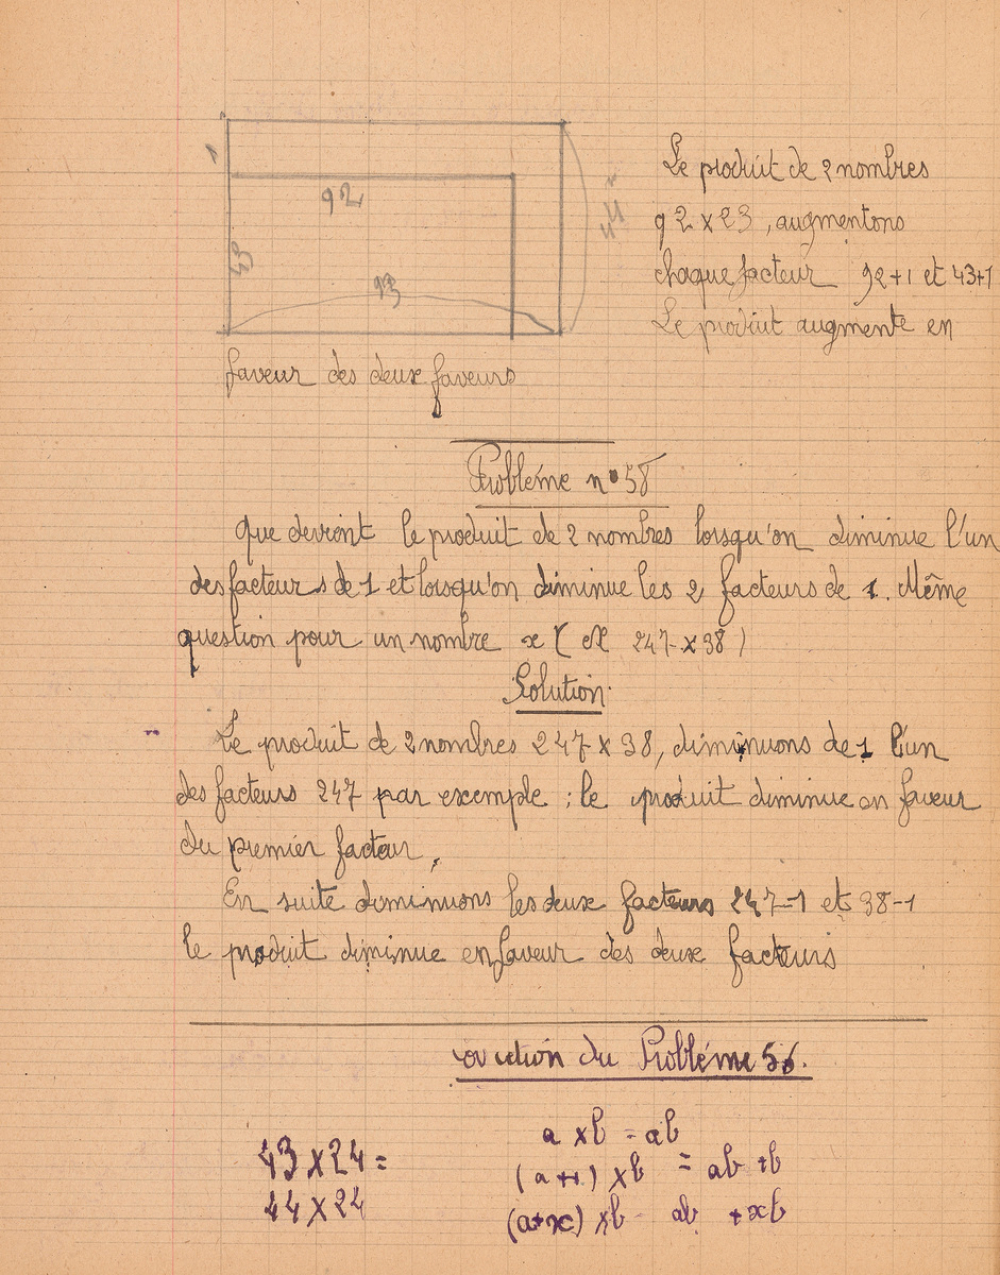 1
92
43
93
44
Le produit de 2 nombres
92 x 23, augmentons
chaque facteur 92+1 et 43+1
Le produit augmente en
faveur des deux faveurs
Problème n° 58
Que devient le produit de 2 nombres lorsqu'on diminue l'un
des facteurs de 1 et lorsqu'on diminue les 2 facteurs de 1. Même
question pour un nombre x ( ex 247 x 38 )
Solution
Le produit de 2 nombres 247 x 38, diminuons de 1 l'un
des facteurs 247 par exemple ; le produit diminue en faveur
du premier facteur,
En suite diminuons les deux facteurs 247-1 et 38-1
le produit diminue en faveur des deux facteurs
du Problème 56.
43 x 24 =
44 x 24
a x b = ab
(a+1) x b = ab + b
(a+x) x b ab + xb